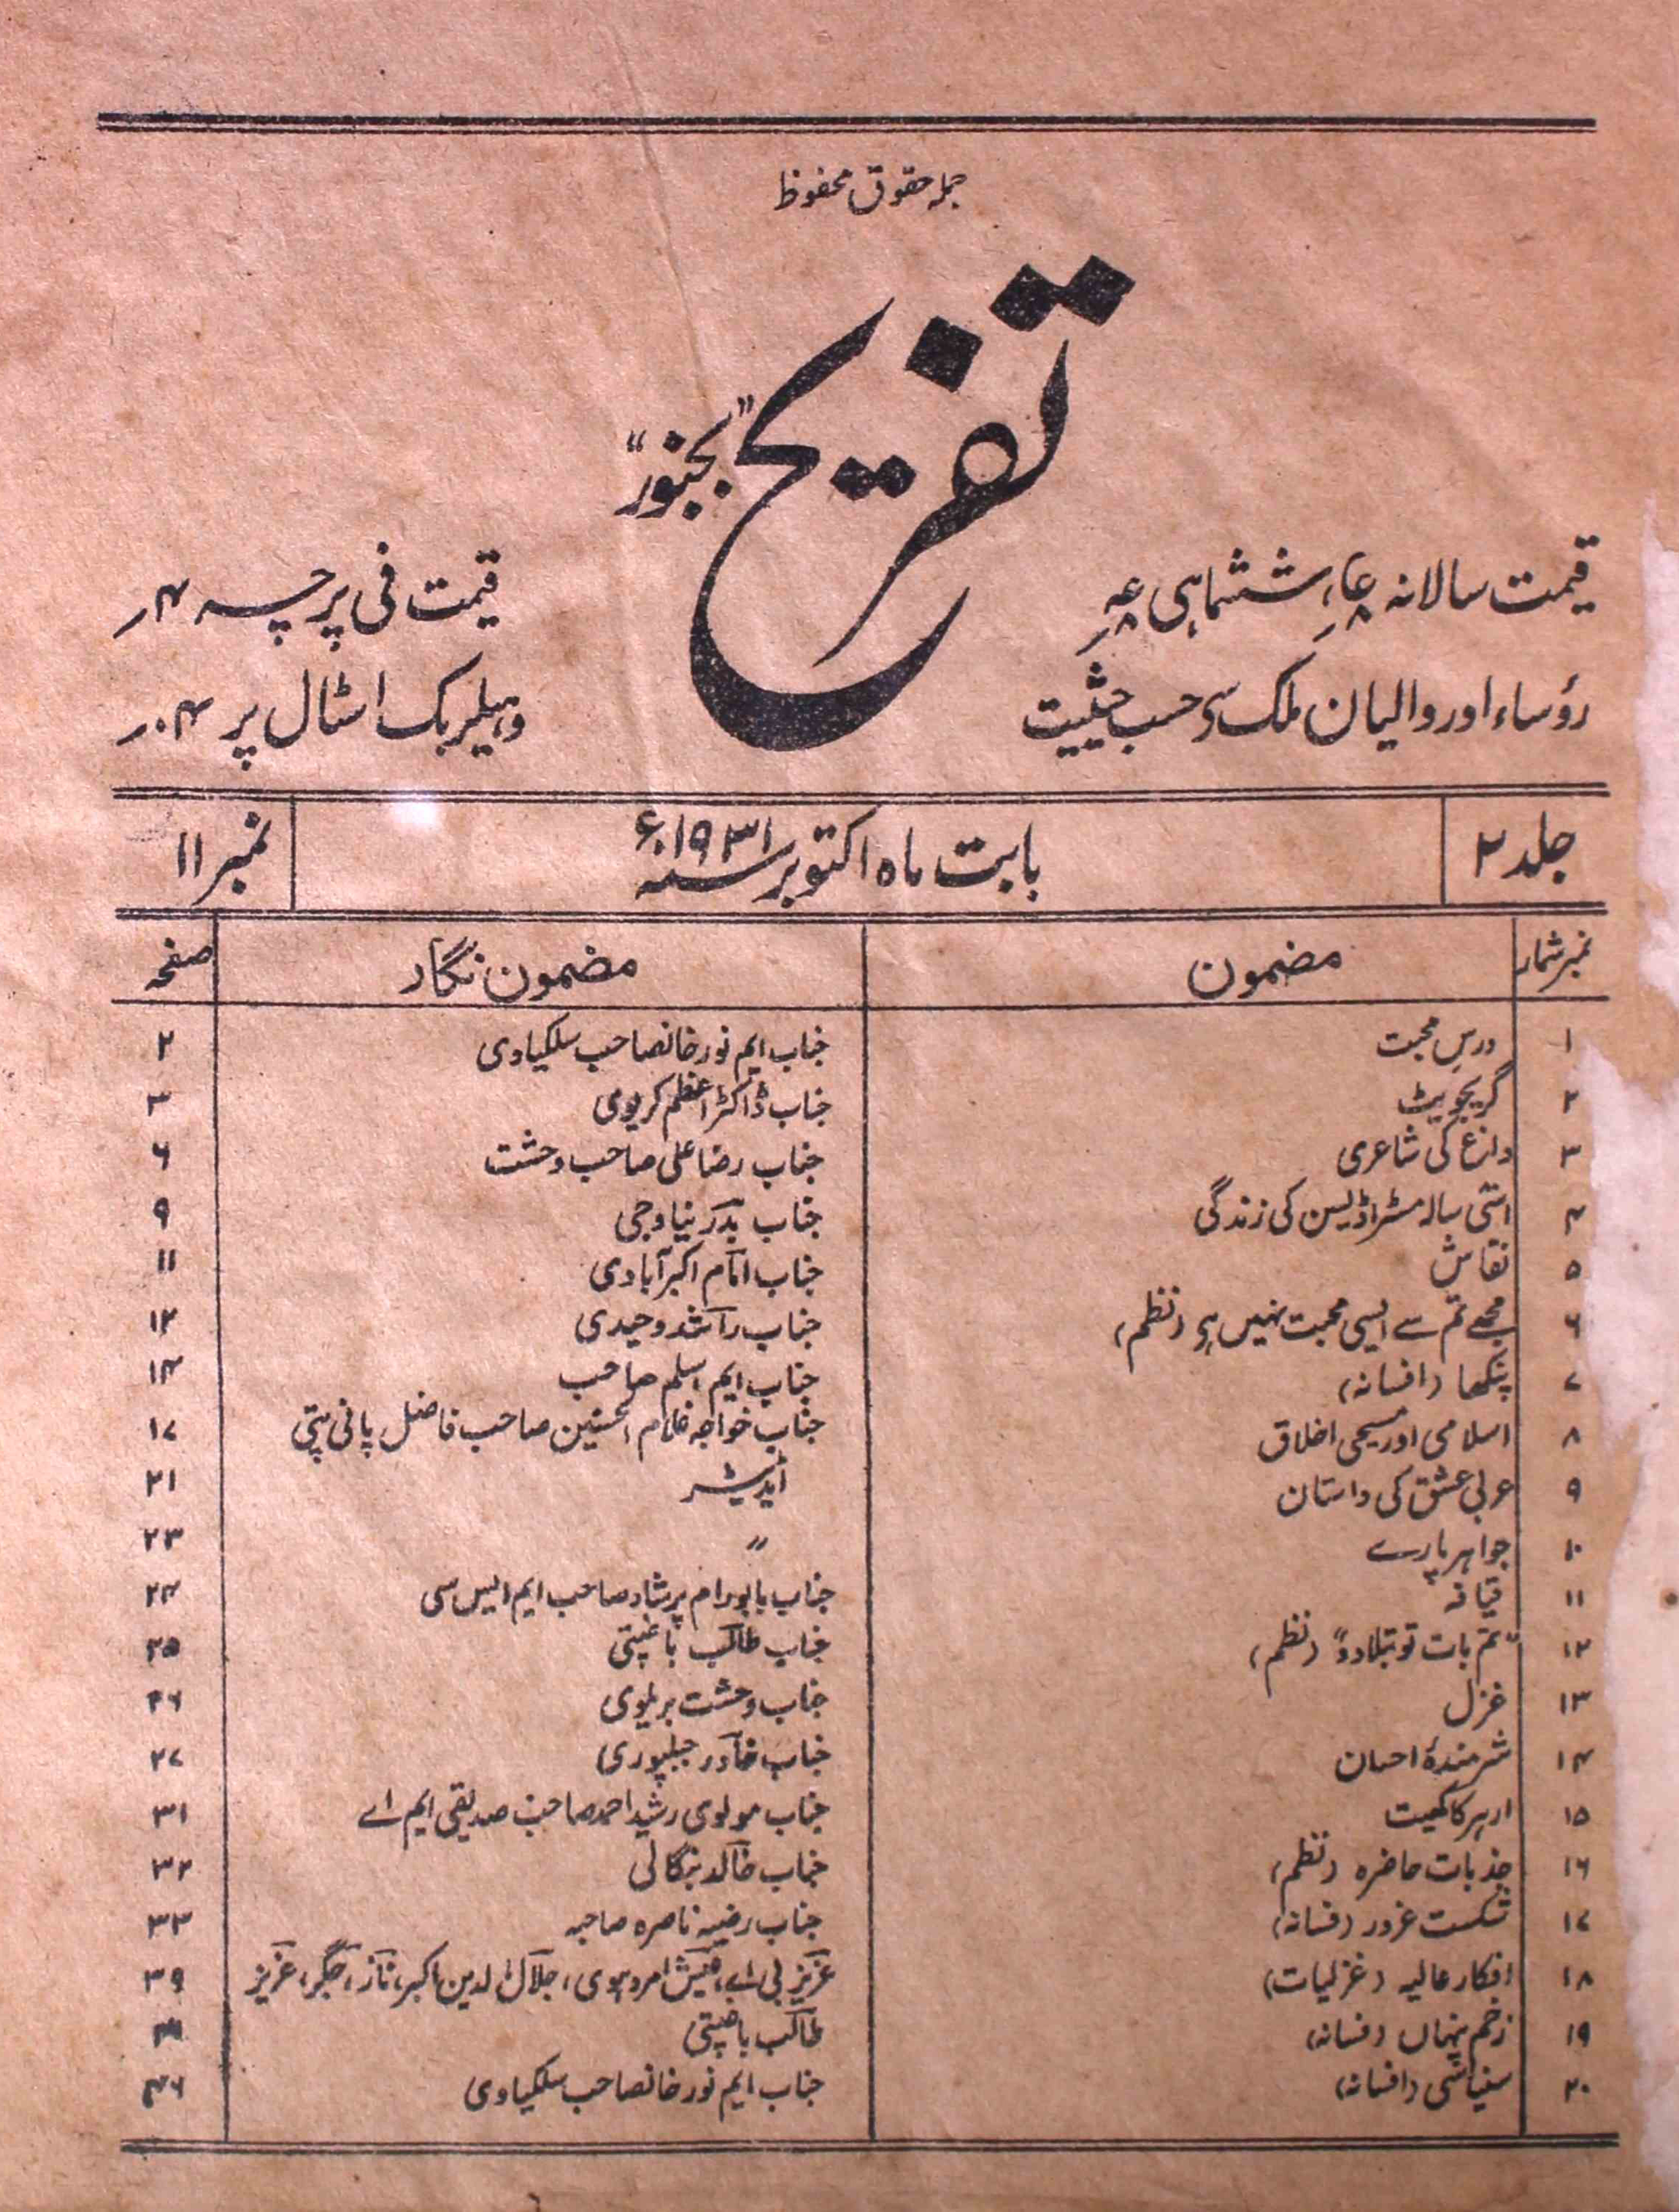 جملہ حقوق محفوظ
تفریح
"بجنور"
قیمت سالانہ ششماہی
قیمت فی پرچہ ۴ر
رؤساء اور والیان ملک سے حسب حیثیت
وہیلر بک اسٹال پر ۴ر
جلد ۲ بابت ماہ اکتوبر سنہ ۱۹۳۱ء نمبر ۱۱
نمبر شمار مضمون مضمون نگار صفحہ
۱ درس محبت جناب ایم نور خانصاحب سلکیاوی ۲
۲ گریجویٹ جناب ڈاکٹر اعظم کریوی ۳
۳ داغ کی شاعری جناب رضا علی صاحب وحشت ۶
۴ اسّی سالہ مسٹر اڈیسن کی زندگی جناب بدر نیاوجی ۹
۵ نقاش جناب امام اکبر آبادی ۱۱
۶ مجھے تم سے ایسی محبت نہیں ہے (نظم) جناب راشد وحیدی ۱۲
۷ پنکھا (افسانہ) جناب ایم اسلم صاحب ۱۴
۸ اسلامی اور مسیحی اخلاق جناب خواجہ غلام الحسنین صاحب فاضل پانی پتی ۱۷
۹ عربی عشق کی داستان ایڈیٹر ۲۱
۱۰ جواہر پارے " ۲۳
۱۱ قیافہ جناب بابو رام پرشاد صاحب ایم ایس سی ۲۴
۱۲ "تم بات تو بتلا دو" (نظم) جناب طالب باغپتی ۲۵
۱۳ غزل جناب وحشت بریلوی ۲۶
۱۴ شرمندۂ احسان جناب خاور جبلپوری ۲۷
۱۵ ارہر کا کھیت جناب مولوی رشید احمد صاحب صدیقی ایم اے ۳۱
۱۶ جذبات حاضرہ (نظم) جناب خالد بنگالی ۳۲
۱۷ شکست غرور (فسانہ) جناب رضیہ ناصرہ صاحبہ ۳۳
۱۸ افکار عالیہ (غزلیات) عزیز بی اے، عیش امروہوی، جلال الدین اکبر، ناز، جگر، عزیز ۳۹
۱۹ زخم پنہاں (فسانہ) طالب باغپتی
۲۰ سنیاسی (افسانہ) جناب ایم نور خانصاحب سلکیاوی ۴۶